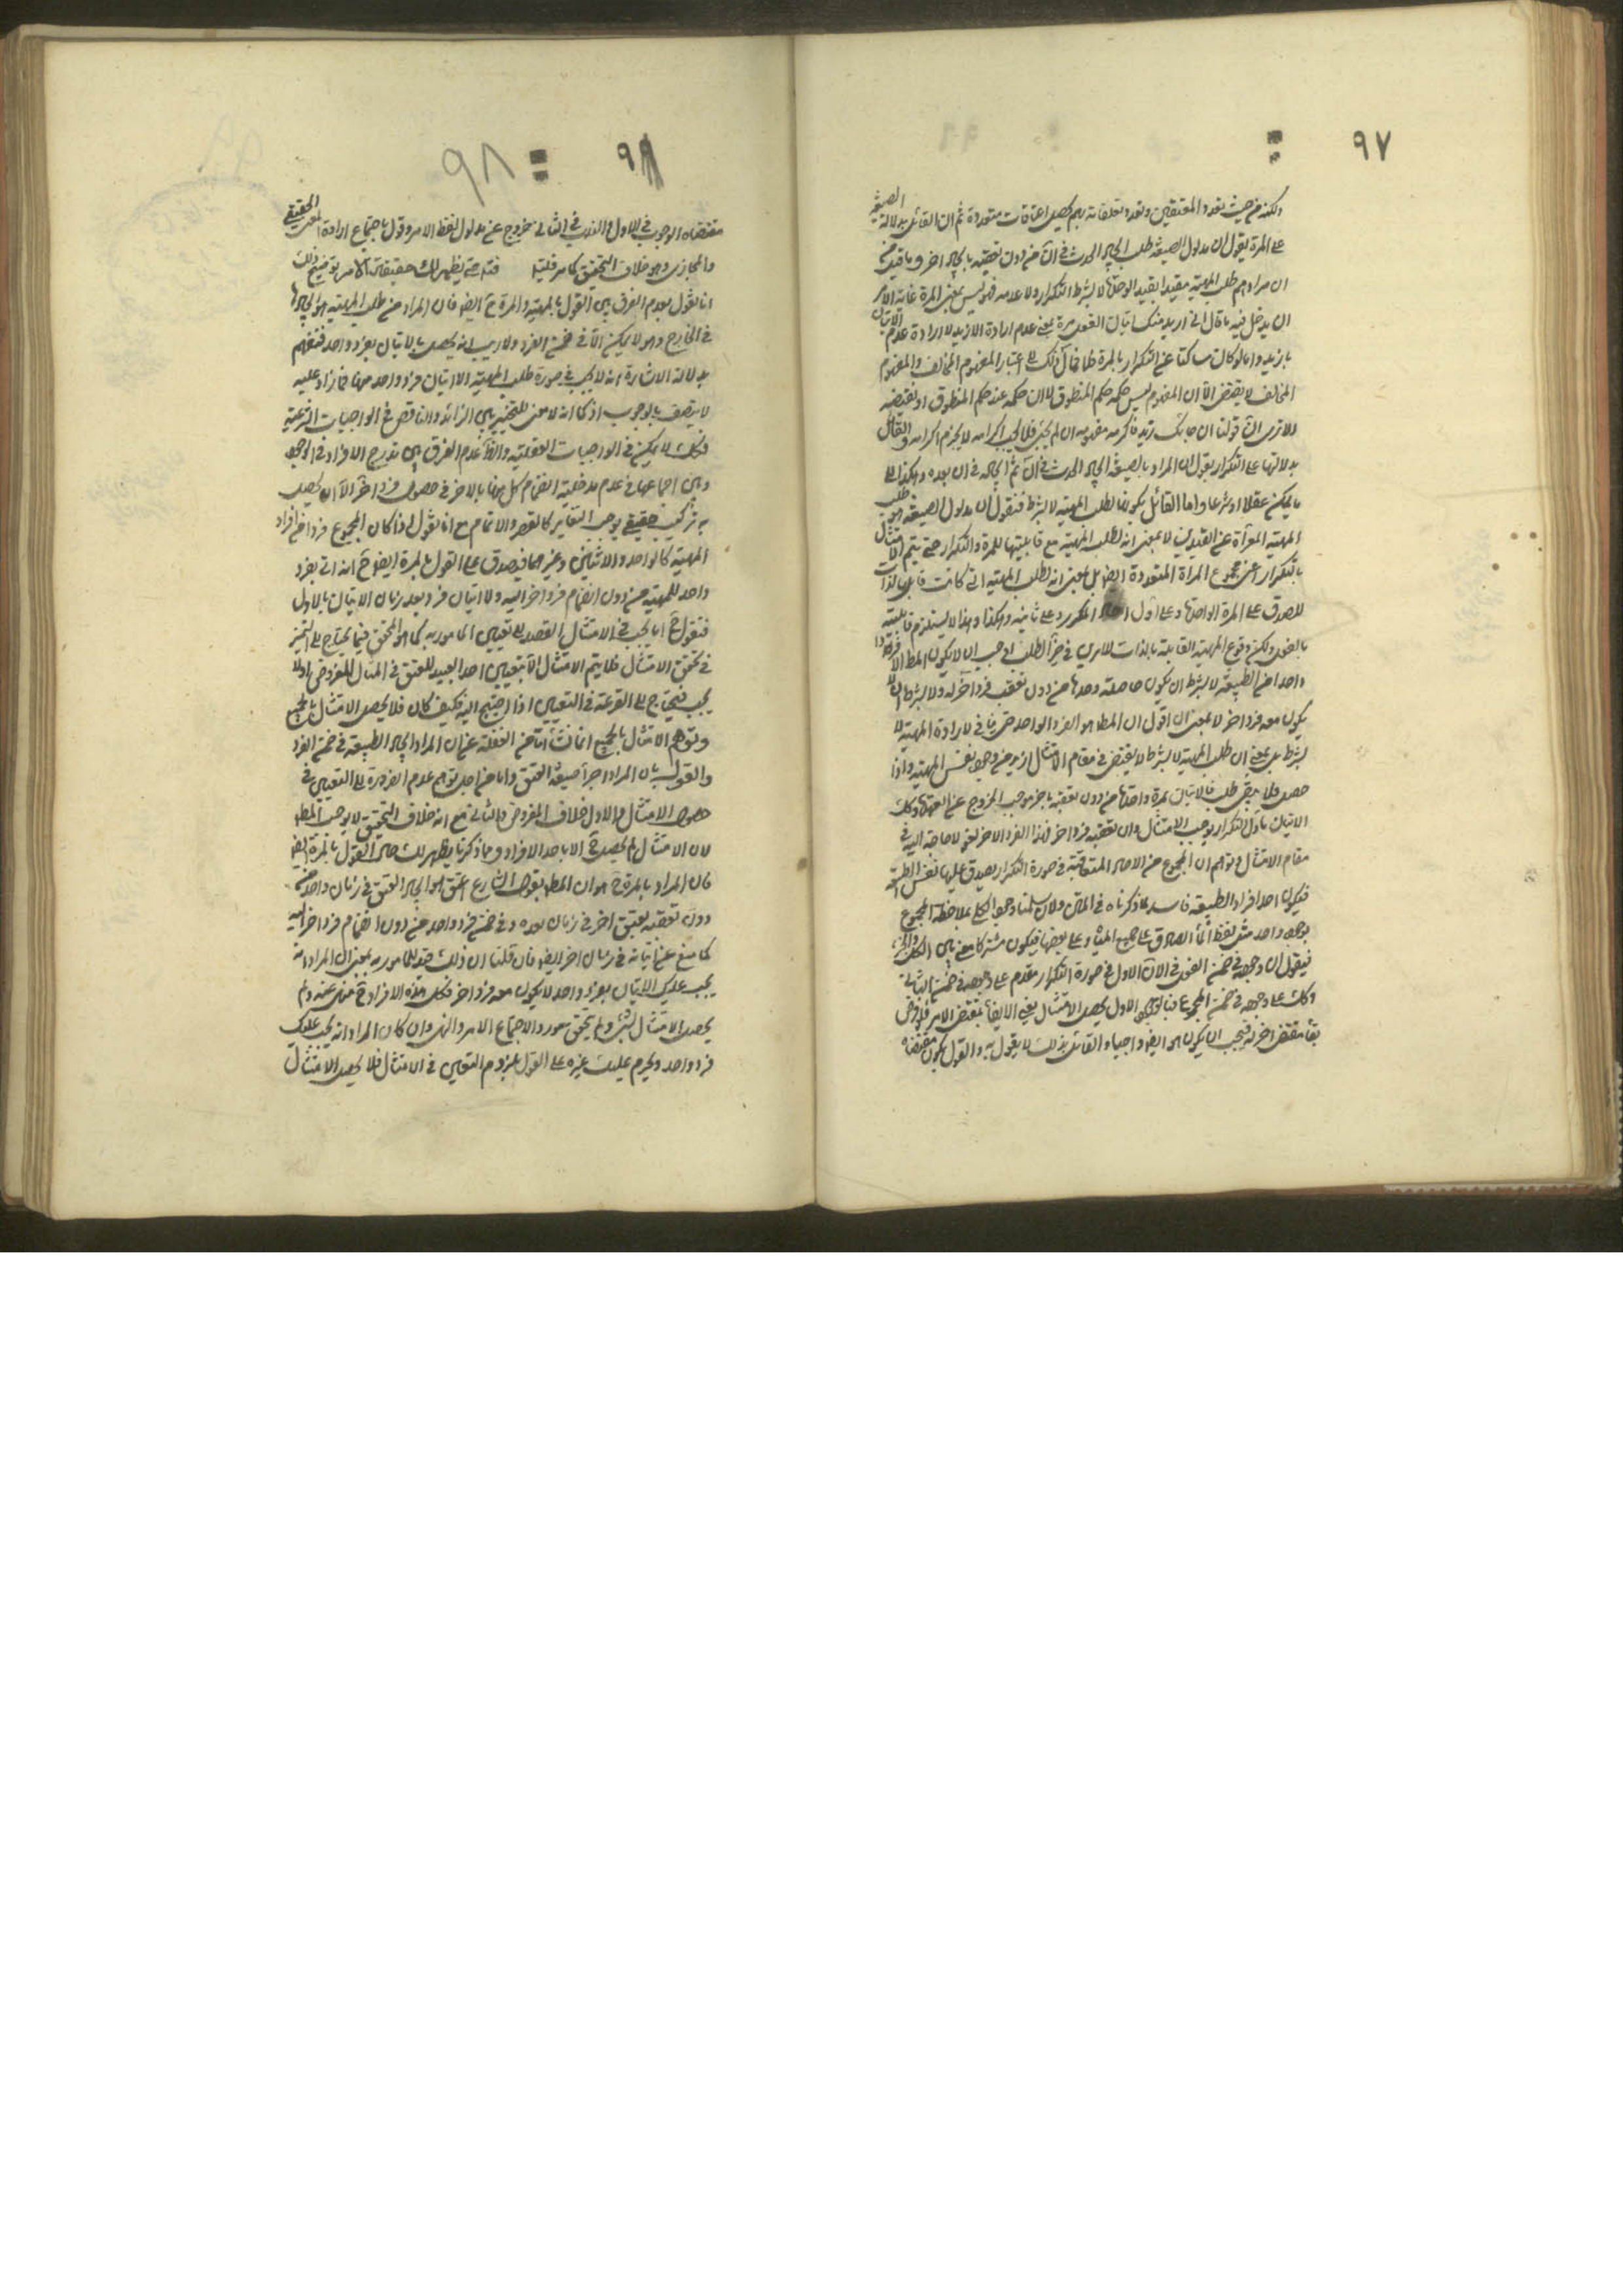 ٩٧
ولكنه من حيث تعدد المعتقين وتعدد تعلقاته بهم يحصل اعتاقات متعددة ثم ان القائل بدلالة الصيغة
على المرة يقول ان مدلول الصيغة طلب ايجاد الحدث في آن من دون تعقبه بايجاد اخر وما قيل من
ان مرادهم طلب المهية مقيدا بقيد الوحدة لا بشرط التكرار ولا عدمه فهو ليس بمعنى المرة غاية الامر
ان يدخل فيه ما قال اني اريد منك اتيان الفعل مرة بمعنى عدم ارادة الازيد لا ارادة عدم الاتيان
بازيد واما لو كان ساكتا عن التكرار بالمرة فلما مآل ذلك الى اعتبار المفهوم المخالف والمفهوم
المخالف لا يقتضي الا ان المفهوم ليس حكمه حكم المنطوق لا ان حكمه عند حكم المنطوق او نقيضه
الا ترى ان قولنا ان جائك زيد فاكرمه مفهومه ان لم يجئ فلا يجب اكرامه لا يحرم اكرامه والقائل
بدلالتها على التكرار يقول ان المراد بالصيغة ايجاد الحدث في آن ثم ايجاده في ان بعده وهكذا الى
ما يمكن عقلا او شرعا واما القائل بكونها لطلب المهية لا بشرط فنقول ان مدلول الصيغة هو طلب
المهية المعراة عن القيدين لا بمعنى انه لطلب المهية مع قابليتها للمرة والتكرار حتى يتم الامتثال
بالتكرار اعني مجموع المراة المتعددة ايضا بل بمعنى انه لطلب المهية التي كانت قابل لذات
للصدق على المرة الواحدة وعلى اول المكرر وعلى ثانيه وهكذا وهذا لا يستلزم قابليته
بالفعل ولكن وقوع المهية القابلة بالذات للامرين في حيز الطلب اوجب ان لا يكون المط الا فردا
واحدا من الطبيعة لا بشرط ان يكون حاصلة وحدها من دون تعقب فرد آخر له ولا بشرط ان لا
يكون معه فرد اخر لا بمعنى ان اقول ان المط هو الفرد الواحد حتى ينافي لارادة المهية لا
بشرط بل بمعنى ان طلب المهية لا بشرط لا يقتضي في مقام الامتثال ازيد من وجود نفس المهية واذا
حصل فلا يبقى طلب فالاتيان بمرة واحدة من دون تعقبه باخر موجب للخروج عن العهدة وكك
الاتيان باول التكرار يوجب الامتثال وان تعقبه فرد اخر فهذا الفرد الاخر لغو لا حاجة اليه في
مقام الامتثال وتوهم ان المجموع من الاحاد المتعاقبة في صورة التكرار يصدق عليها نفس الطبيعة
فيكون احد افراد الطبيعة فاسد لما ذكرناه في المتن ولان سلمنا وجود الكلي بملاحظة المجموع
بوجود واحد مثل لفظ الماء الصادق على جميع المياه وعلى بعضها فيكون مشتركا معنى بين الكل والجزء
فيقول ان وجوده في ضمن الفعل في الان الاول في صورة التكرار مقدم على وجوده في ضمن الثاني
وكك على وجوده في ضمن المجموع فبالوجود الاول يحصل الامتثال بغير الايفاء بمقتضى الامر فلو فرض
بقاء مقتضى اخر له فيجب ان يكون هو ايضا واجبا والقائل بذلك لا يقول به والقول بكون مقتضاه
٩٨
٩٨
مقتضاه الوجوب في الاول والندب في الثاني خروج عن مدلول لفظ الامر وقول باجتماع ارادة المعنى الحقيقي
والمجازي وهو خلاف التحقيق كما مر فليتأمل فتم حتى يظهر لك حقيقة الامر توضيح ذلك
انا نقول بعدم الفرق بين القول بالمهية والمرة ح ايضا فان المراد من طلب المهية هو ايجادها
في الخارج وهو لا يمكن الا في ضمن الفرد ولا ريب انه يحصل بالاتيان بفرد واحد فنفهم
بدلالة الاشارة انه لا يجب في صورة طلب المهية الا اتيان فرد واحد منها فما زاد عليه
لا يتصف بالوجوب اذ كما انه لا معنى للتخيير بين الزائد والناقص في الواجبات الشرعية
فكك لا يمكن في الواجبات العقلية والظ عدم الفرق بين تدريج الافراد في الوجود
وبين اجتماعها في عدم مدخلية انضمام كل منها بالاخر في حصول فرد آخر الا ان يحصل
به تركيب حقيقي يوجب التغاير كالقصر والاتمام مع انا نقول اذا كان المجموع فردا من افراد
المهية كالواحد والاثنين وغيرهما فيصدق على القول بالمرة ايضا ح انه اتى بفرد
واحد للمهية من دون انضمام فرد اخر اليه ولا اتيان فرد بعد زمان الاتيان بالاول
فنقول ح انما يجب في الامتثال القصد الى تعيين المامور به كما هو المحقق فيما يحتاج الى التميز
في تحقق الامتثال فلا يتم الامتثال الا بتعيين احد العبيد للعتق في المثال المفروض اولا
يجب فيحتاج الى القرعة في التعيين اذا احتيج اليه فكيف كان فلا يحصل الامتثال بالجميع
وتوهم الامتثال بالجميع انما نشأ اما من الغفلة عن ان المراد ايجاد الطبيعة في ضمن الفرد
والقول بان المراد اجراء صيغة العتق واما من اجل توهم عدم الضرورة الى التعيين في
حصول الامتثال والاول خلاف المفروض والثاني مع انه خلاف التحقيق لا يوجب المط
لان الامتثال لم يحصل ح الا باحد الافراد ومما ذكرنا يظهر لك حال القول بالمرة ايضا
فان المراد بالمرة ح هو ان المط بقول الشارع اعتق هو ايجاد العتق في زمان واحد من
دون تعقبه بعتق اخر في زمان بعده وفي ضمن فرد واحد من دون انضمام فرد اخر اليه
كما منع عن اتيانه في زمان اخر ايضا فان قلنا ان ذلك قيد للمامور به بمعنى ان المراد انه
يجب عليك الاتيان بفرد واحد لا يكون معه فرد اخر فكل هذه الافراد ح منهي عنه ولم
يحصل الامتثال بشئ ولم يتحقق مورد الاجتماع الامر والنهي وان كان المراد انه يجب عليك
فرد واحد ويحرم عليك غيره على القول بلزوم التعيين في الامتثال فلا يحصل الامتثال